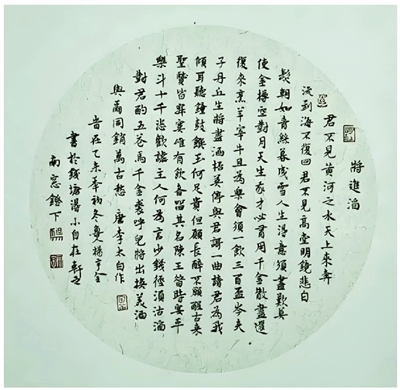 將進酒
君不見黃河之水天上來奔
流到海不復回君不見高堂明鏡悲白
髮朝如青絲暮成雪人生得意須盡歡莫
使金樽空對月天生我才必有用千金散盡還
復來烹羊宰牛且為樂會須一飲三百盃岑夫
子丹丘生將進酒杯莫停與君歌一曲請君為我
傾耳聽鐘鼓饌玉何足貴但願長醉不願醒古來
聖賢皆寂寞唯有飲者留其名陳王昔時宴平
樂斗十千恣歡謔主人何為言少錢徑須沽酒
對君酌五花馬千金裘呼兒將出換美酒
與爾同銷萬古愁 唐李太白作
在乙未 初冬
書於錢塘得小自在軒之
南窓鐙下